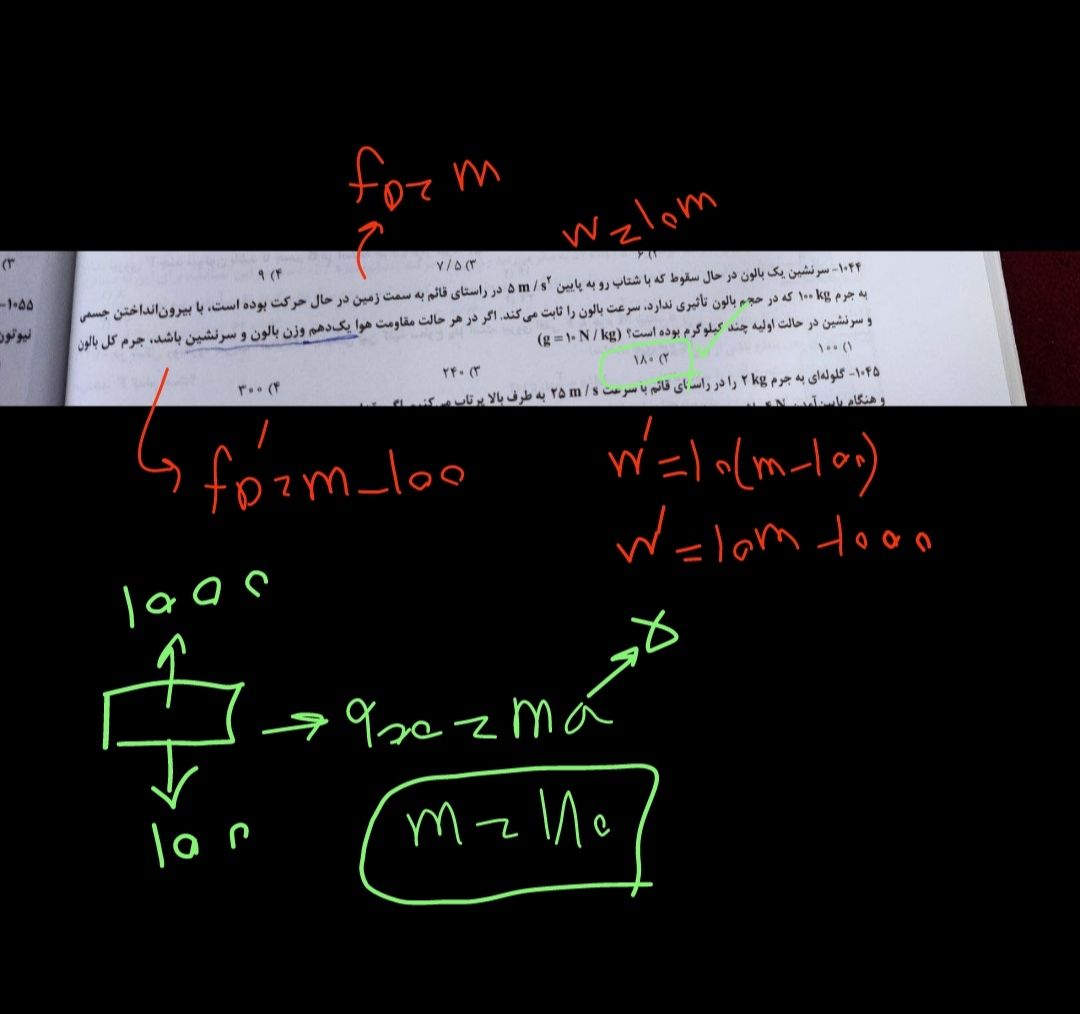 f_D = m
W = 10m
۳)
۷/۵ (۳
۹ (۴
۱۰۴۴- سرنشین یک بالون در حال سقوط که با شتاب رو به پایین ۵ m/s² در راستای قائم به سمت زمین در حال حرکت بوده است، با بیرون‌انداختن جسمی
به جرم ۱۰۰ kg که در حجم بالون تأثیری ندارد، سرعت بالون را ثابت می‌کند. اگر در هر حالت مقاومت هوا یک‌دهم وزن بالون و سرنشین باشد، جرم کل بالون
و سرنشین در حالت اولیه چند کیلوگرم بوده است؟ (g = ۱۰ N/kg)
۱) ۱۰۰
۲) ۱۸۰
۳) ۲۴۰
۴) ۳۰۰
۱۰۴۵- گلوله‌ای به جرم ۲ kg را در راستای قائم با سرعت ۲۵ m/s به طرف بالا پرتاب می‌کنیم.
۱۰۵۵-
نیوتون
f'_D = m - 100
W' = 10(m - 100)
W' = 10m - 1000
1000
100
900 = ma
۵
m = ۱۸۰